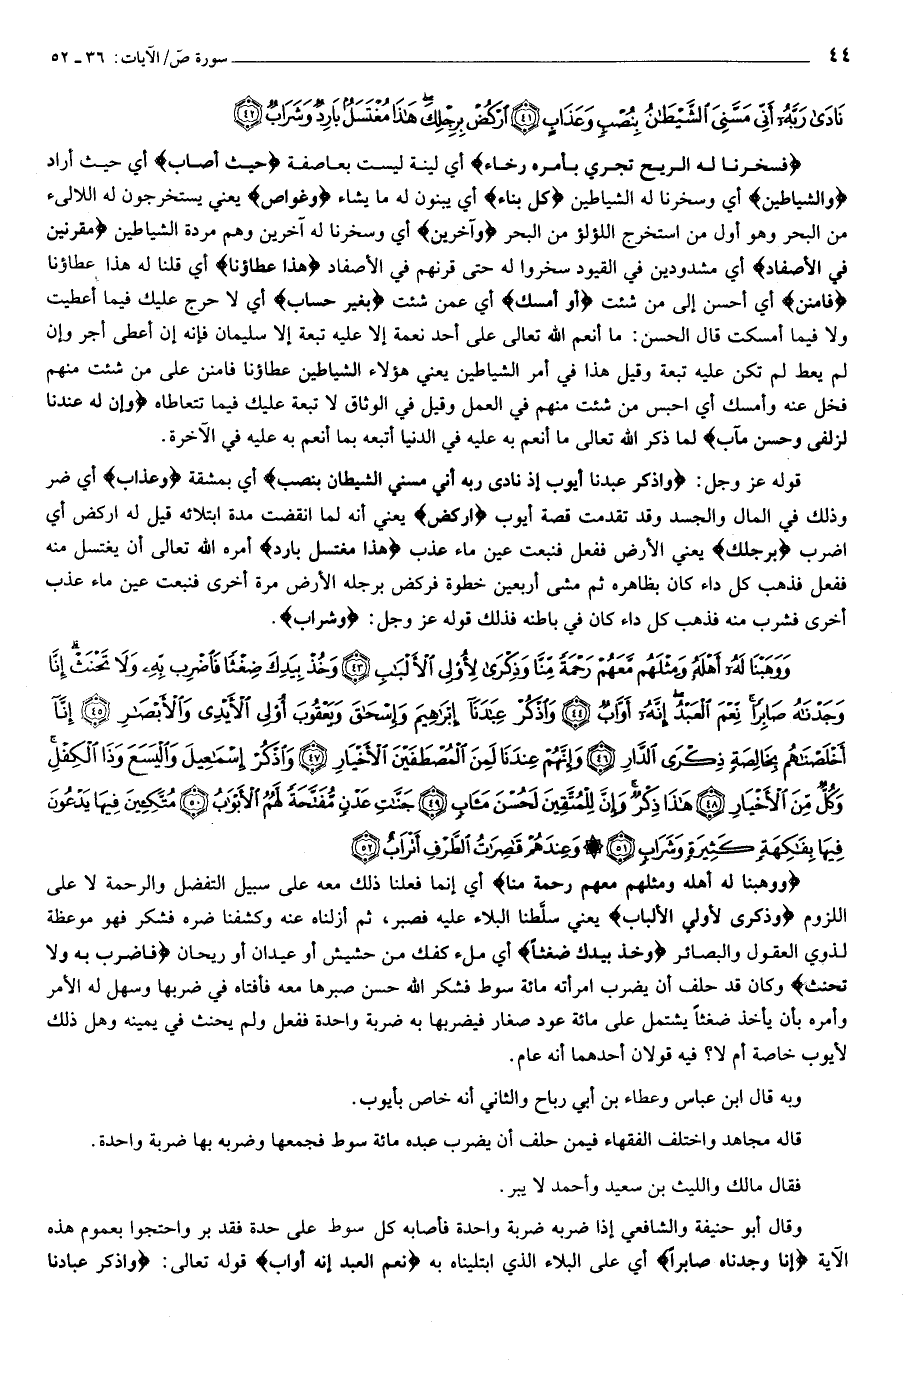 ٤٤ سورة صۤ/ الآيات: ٣٦ ـ ٥٢
نَادَىٰ رَبَّهُۥٓ أَنِّي مَسَّنِيَ ٱلشَّيْطَٰنُ بِنُصْبٍ وَعَذَابٍ ﴿٤١﴾ ٱرْكُضْ بِرِجْلِكَ ۖ هَٰذَا مُغْتَسَلٌۢ بَارِدٌ وَشَرَابٌ ﴿٤٢﴾
﴿فسخرنا له الريح تجري بأمره رخاء﴾ أي لينة ليست بعاصفة ﴿حيث أصاب﴾ أي حيث أراد
﴿والشياطين﴾ أي وسخرنا له الشياطين ﴿كل بناء﴾ أي يبنون له ما يشاء ﴿وغواص﴾ يعني يستخرجون له اللالىء
من البحر وهو أول من استخرج اللؤلؤ من البحر ﴿وآخرين﴾ أي وسخرنا له آخرين وهم مردة الشياطين ﴿مقرنين
في الأصفاد﴾ أي مشدودين في القيود سخروا له حتى قرنهم في الأصفاد ﴿هذا عطاؤنا﴾ أي قلنا له هذا عطاؤنا
﴿فامنن﴾ أي أحسن إلى من شئت ﴿أو أمسك﴾ أي عمن شئت ﴿بغير حساب﴾ أي لا حرج عليك فيما أعطيت
ولا فيما أمسكت قال الحسن: ما أنعم الله تعالى على أحد نعمة إلا عليه تبعة إلا سليمان فإنه إن أعطى أجر وإن
لم يعط لم تكن عليه تبعة وقيل هذا في أمر الشياطين يعني هؤلاء الشياطين عطاؤنا فامنن على من شئت منهم
فخل عنه وأمسك أي احبس من شئت منهم في العمل وقيل في الوثاق لا تبعة عليك فيما تتعاطاه ﴿وإن له عندنا
لزلفى وحسن مآب﴾ لما ذكر الله تعالى ما أنعم به عليه في الدنيا أتبعه بما أنعم به عليه في الآخرة.
قوله عز وجل: ﴿واذكر عبدنا أيوب إذ نادى ربه أني مسني الشيطان بنصب﴾ أي بمشقة ﴿وعذاب﴾ أي ضر
وذلك في المال والجسد وقد تقدمت قصة أيوب ﴿اركض﴾ يعني أنه لما انقضت مدة ابتلائه قيل له اركض أي
اضرب ﴿برجلك﴾ يعني الأرض ففعل فنبعت عين ماء عذب ﴿هذا مغتسل بارد﴾ أمره الله تعالى أن يغتسل منه
ففعل فذهب كل داء كان بظاهره ثم مشى أربعين خطوة فركض برجله الأرض مرة أخرى فنبعت عين ماء عذب
أخرى فشرب منه فذهب كل داء كان في باطنه فذلك قوله عز وجل: ﴿وشراب﴾.
وَوَهَبْنَا لَهُۥٓ أَهْلَهُۥ وَمِثْلَهُم مَّعَهُمْ رَحْمَةً مِّنَّا وَذِكْرَىٰ لِأُو۟لِي ٱلْأَلْبَٰبِ ﴿٤٣﴾ وَخُذْ بِيَدِكَ ضِغْثًا فَٱضْرِب بِّهِۦ وَلَا تَحْنَثْ ۗ إِنَّا
وَجَدْنَٰهُ صَابِرًا ۚ نِّعْمَ ٱلْعَبْدُ ۖ إِنَّهُۥٓ أَوَّابٌ ﴿٤٤﴾ وَٱذْكُرْ عِبَٰدَنَآ إِبْرَٰهِيمَ وَإِسْحَٰقَ وَيَعْقُوبَ أُو۟لِي ٱلْأَيْدِي وَٱلْأَبْصَٰرِ ﴿٤٥﴾ إِنَّآ
أَخْلَصْنَٰهُم بِخَالِصَةٍ ذِكْرَى ٱلدَّارِ ﴿٤٦﴾ وَإِنَّهُمْ عِندَنَا لَمِنَ ٱلْمُصْطَفَيْنَ ٱلْأَخْيَارِ ﴿٤٧﴾ وَٱذْكُرْ إِسْمَٰعِيلَ وَٱلْيَسَعَ وَذَا ٱلْكِفْلِ ۖ
وَكُلٌّ مِّنَ ٱلْأَخْيَارِ ﴿٤٨﴾ هَٰذَا ذِكْرٌ ۚ وَإِنَّ لِلْمُتَّقِينَ لَحُسْنَ مَـَٔابٍ ﴿٤٩﴾ جَنَّٰتِ عَدْنٍ مُّفَتَّحَةً لَّهُمُ ٱلْأَبْوَٰبُ ﴿٥٠﴾ مُتَّكِـِٔينَ فِيهَا يَدْعُونَ
فِيهَا بِفَٰكِهَةٍ كَثِيرَةٍ وَشَرَابٍ ﴿٥١﴾ ۞ وَعِندَهُمْ قَٰصِرَٰتُ ٱلطَّرْفِ أَتْرَابٌ ﴿٥٢﴾
﴿ووهبنا له أهله ومثلهم معهم رحمة منا﴾ أي إنما فعلنا ذلك معه على سبيل التفضل والرحمة لا على
اللزوم ﴿وذكرى لأولي الألباب﴾ يعني سلَّطنا البلاء عليه فصبر، ثم أزلناه عنه وكشفنا ضره فشكر فهو موعظة
لذوي العقول والبصائر ﴿وخذ بيدك ضغثاً﴾ أي ملء كفك من حشيش أو عيدان أو ريحان ﴿فاضرب به ولا
تحنث﴾ وكان قد حلف أن يضرب امرأته مائة سوط فشكر الله حسن صبرها معه فأفتاه في ضربها وسهل له الأمر
وأمره بأن يأخذ ضغثاً يشتمل على مائة عود صغار فيضربها به ضربة واحدة ففعل ولم يحنث في يمينه وهل ذلك
لأيوب خاصة أم لا؟ فيه قولان أحدهما أنه عام.
وبه قال ابن عباس وعطاء بن أبي رباح والثاني أنه خاص بأيوب.
قاله مجاهد واختلف الفقهاء فيمن حلف أن يضرب عبده مائة سوط فجمعها وضربه بها ضربة واحدة.
فقال مالك والليث بن سعيد وأحمد لا يبر.
وقال أبو حنيفة والشافعي إذا ضربه ضربة واحدة فأصابه كل سوط على حدة فقد بر واحتجوا بعموم هذه
الآية ﴿إنا وجدناه صابراً﴾ أي على البلاء الذي ابتليناه به ﴿نعم العبد إنه أواب﴾ قوله تعالى: ﴿واذكر عبادنا